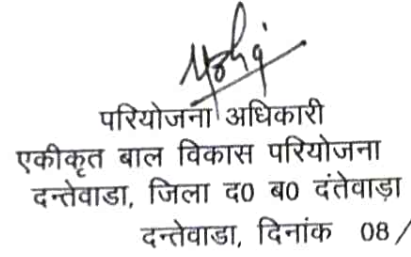 परियोजना अधिकारी
एकीकृत बाल विकास परियोजना
दन्तेवाडा, जिला द0 ब0 दंतेवाड़ा
दन्तेवाडा, दिनांक 08/